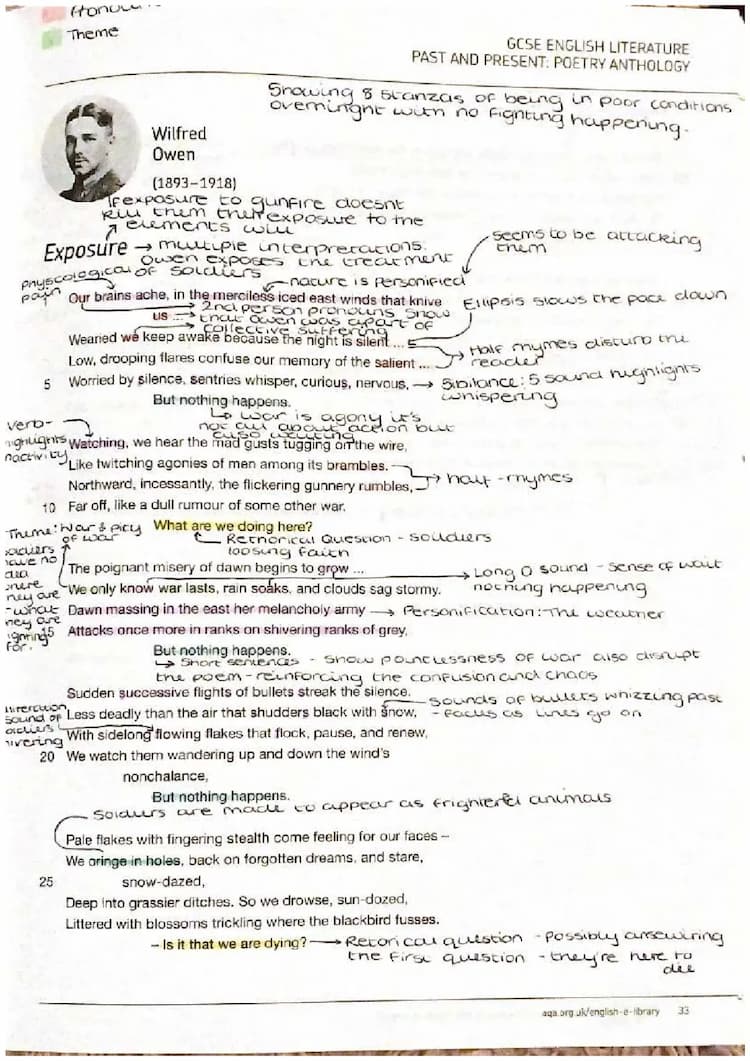 Pronouns
Theme
GCSE ENGLISH LITERATURE
PAST AND PRESENT: POETRY ANTHOLOGY
Showing 8 stanzas of being in poor conditions
overninght with no fighting happening.
Wilfred
Owen
(1893–1918)
If exposure to gunfire doesnt
kill them then exposure to the
elements will
Exposure → multiple interpretations:
Owen exposes the treatment
of soldiers
seems to be attacking
them
physcological
pain
nature is personified
Our brains ache, in the merciless iced east winds that knive
us ...
2nd person pronouns show
that Owen was apart of
collective suffering
Ellipsis slows the pace down
Wearied we keep awake because the night is silent ...
Low, drooping flares confuse our memory of the salient ...
Half rhymes disturb the
reader
5 Worried by silence, sentries whisper, curious, nervous,
Sibilance: S sound highlights
whispering
But nothing happens.
war is agony it's
not all about action but
also waiting
verb-
highlights
inactivity
Watching, we hear the mad gusts tugging on the wire,
Like twitching agonies of men among its brambles.
Northward, incessantly, the flickering gunnery rumbles,
half-rhymes
10 Far off, like a dull rumour of some other war.
What are we doing here?
Rethorical Question - soldiers
loosing faith
Theme: War & pity
of war
soldiers
have no
idea
where
they are
-what
they are
fighting
for.
The poignant misery of dawn begins to grow ...
Long O sound - sense of wait
nothing happening
We only know war lasts, rain soaks, and clouds sag stormy.
Dawn massing in the east her melancholy army → Personification: The weather
15 Attacks once more in ranks on shivering ranks of grey,
But nothing happens.
Short sentences - show pointlessness of war also disrupt
the poem - reinforcing the confusion and chaos
Sudden successive flights of bullets streak the silence.
sounds of bullets whizzing past
- fades as lines go on
Less deadly than the air that shudders black with snow,
sound of
With sidelong flowing flakes that flock, pause, and renew,
20 We watch them wandering up and down the wind's
nonchalance,
But nothing happens.
Soldiers are made to appear as frightened animals
Pale flakes with fingering stealth come feeling for our faces –
We cringe in holes, back on forgotten dreams, and stare,
25 snow-dazed,
Deep into grassier ditches. So we drowse, sun-dozed,
Littered with blossoms trickling where the blackbird fusses.
– Is it that we are dying?
Retorical question - Possibly answering
the first question - they're here to
die
aqa.org.uk/english-e-library 33